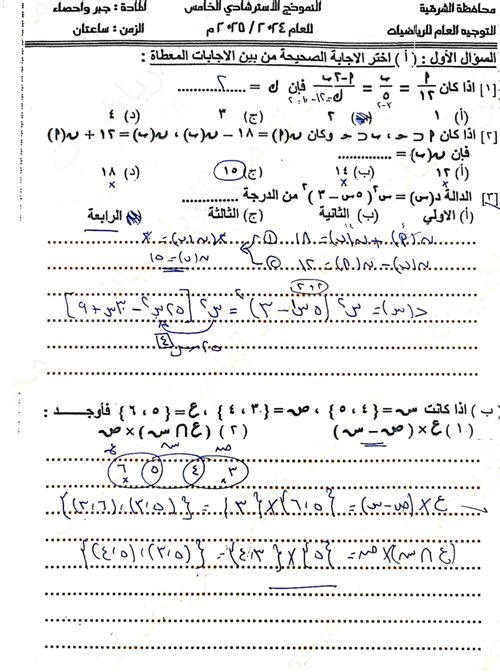 محافظة الشرقية النموذج الاسترشادي الخامس المادة : جبر وإحصاء
التوجيه العام للرياضيات للعام ٢٠٢٤ / ٢٠٢٥ م الزمن : ساعتان
السؤال الأول : ( أ ) اختر الاجابة الصحيحة من بين الاجابات المعطاة :
[١] اذا كان أ/١٢ = ب/٥ = (أ - ٢ب)/ك فإن ك = ........ ٢
ك = ١٢ - ١٠ = ٢
(أ) ١ (ب) ٢ (ج) ٣ (د) ٤
[٢] اذا كان أ ⊂ ح ، ب ⊂ ح وكان ن(أ) = ١٨ - ن(ب) ، ن(ب) = ١٢ + ن(أ)
فإن ن(ب) = ............
(أ) ١٢ (ب) ١٤ (ج) ١٥ (د) ١٨
[٣] الدالة د(س) = س٢ (٥س - ٣)٢ من الدرجة ............
(أ) الاولي (ب) الثانية (ج) الثالثة (د) الرابعة
ن(أ) + ن(ب) = ١٨ ①
ن(ب) - ن(أ) = ١٢ ②
ن(ب) = ١٥
٢+٢
د(س) = س٢ [٥س - ٣]٢ = س٢ [٢٥س٢ - ٣٠س + ٩]
٢٥س٤
(ب) اذا كانت س = {٤ ، ٥} ، ص = {٣ ، ٤} ، ع = {٥ ، ٦} فأوجد :
(١) ع × (ص - س) (٢) (ع ∩ س) × ص
ع س ص
٦ ٥ ٤ ٣
ع × (ص - س) = {٥،٦} × {٣} = {(٥،٣)،(٦،٣)}
(ع ∩ س) × ص = {٥} × {٣،٤} = {(٥،٣)،(٥،٤)}